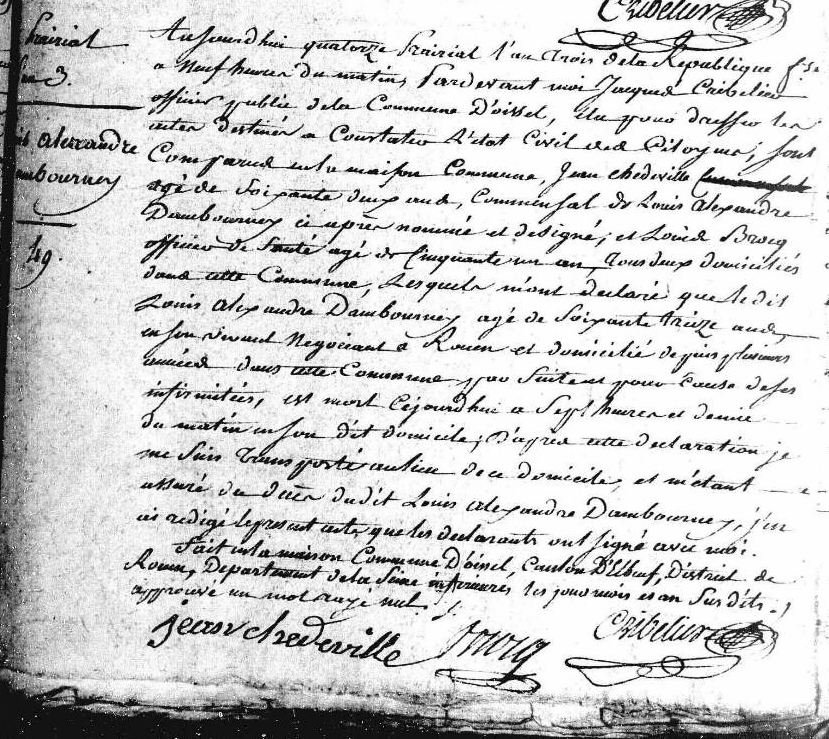 Cribelier
Prairial
l'an 3.
Louis alexandre
Dambourney
49.
Aujourdhui quatorze Prairial l'an trois de la République fse
a neuf heures du matin, Pardevant moi Jacques Cribelier
officier public de la Commune D'oissel, élu pour dresser les
actes destinés a Constater L'état Civil des Citoyens, sont
Comparus en la maison Commune, Jean chedeville
agé de Soixante deux ans, Commensal de Louis alexandre
Dambourney ci après nommé et designé, et Louis Brocq
officier de Santé agé de Cinquante un an, tous deux domiciliés
dans cette Commune, Lesquels m'ont declaré que ledit
Louis alexandre Dambourney agé de Soixante treize ans,
en son vivant Negociant a Rouen et domicilié depuis plusieurs
années dans cette Commune par Suite et pour Cause de ses
infirmitées, est mort Cejourdhui a Sept heures et demie
du matin en son dit domicile; D'après cette declaration je
me Suis transporté au lieu de ce domicile, et m'étant
assuré du décès dudit Louis alexandre Dambourney, j'en
ai redigé le present acte, que les declarants ont signé avec moi.
Fait en la maison Commune D'oissel, Canton D'Elbeuf, District de
Rouen, Departement de la Seine inférieure, les jour mois et an Susdits.
approuvé un mot rayé nul.
jean chedeville
Brocq
Cribelier